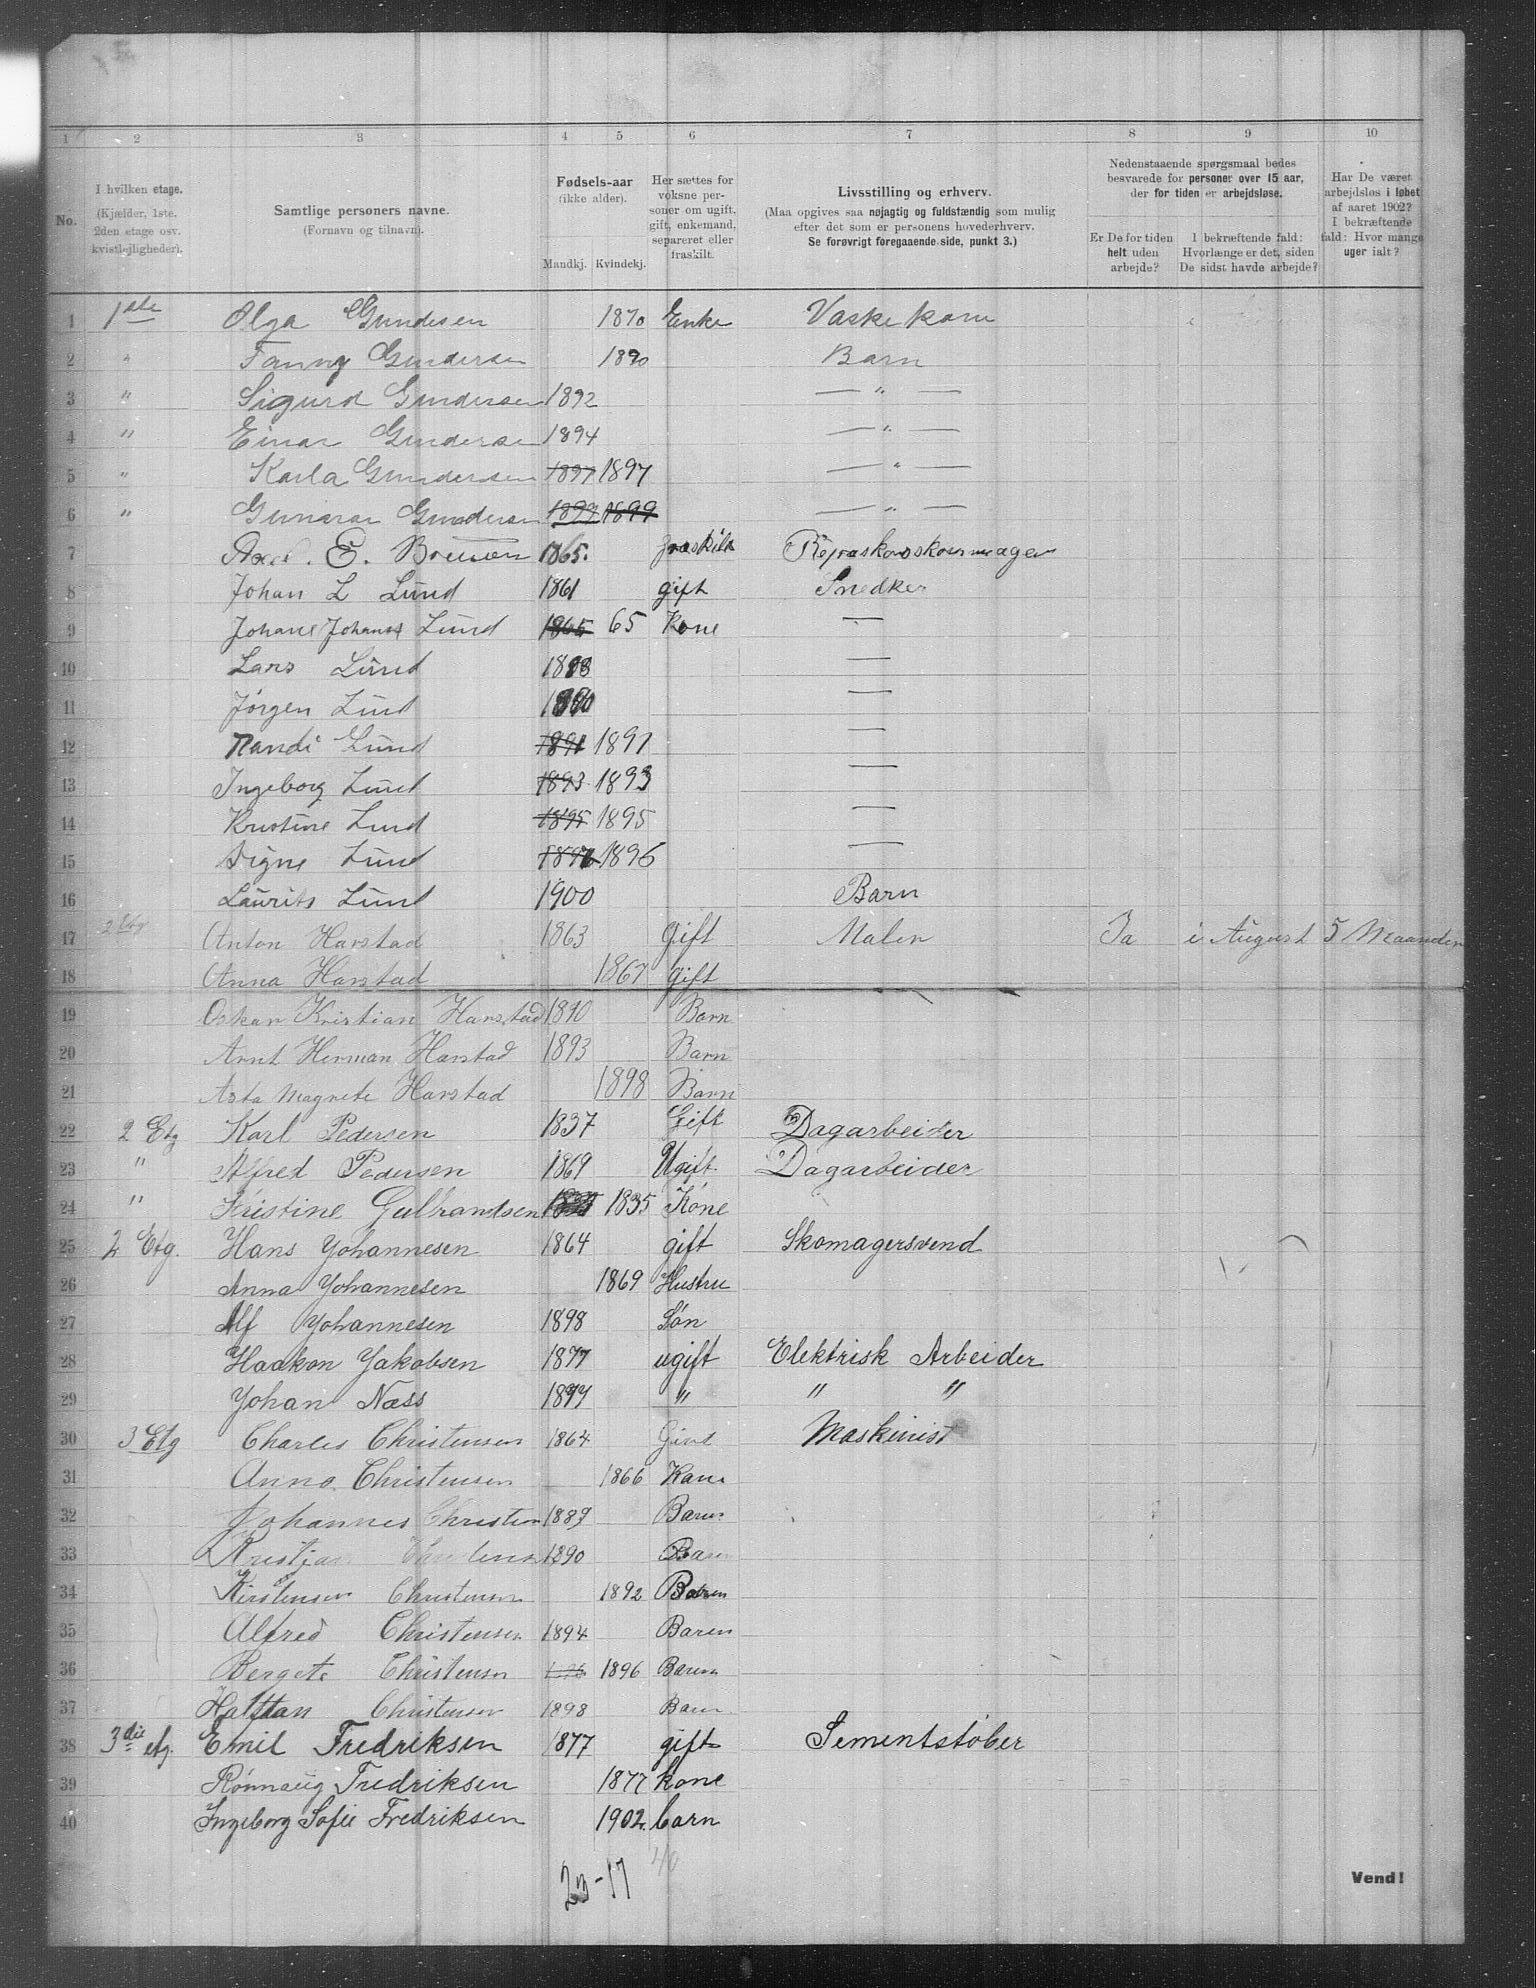 1 2 3 4 5 6 7 8 9 10
No. I hvilken etage. (Kjælder, 1ste. 2den etage osv. kvistlejligheder).
Samtlige personers navne. (Fornavn og tilnavn).
Fødsels-aar (ikke alder). Mandkj. Kvindekj.
Her sættes for voksne personer om ugift, gift, enkemand, separeret eller fraskilt.
Livsstilling og erhverv. (Maa opgives saa nøjagtig og fuldstændig som mulig efter det som er personens hovederhverv. Se forøvrigt foregaaende side, punkt 3.)
Nedenstaaende spørgsmaal bedes besvarede for personer over 15 aar, der for tiden er arbejdsløse.
Er De for tiden helt uden arbejde?
I bekræftende fald: Hvorlænge er det, siden De sidst havde arbejde?
Har De været arbejdsløs i løbet af aaret 1902? I bekræftende fald: Hvor mange uger ialt?
1 1ste Olga Gundesen 1870 Enke Vaskekone
2 " Fanny Gundersen 1890 Barn
3 " Sigurd Gundersen 1892 — " —
4 " Einar Gundersen 1894 — " —
5 " Karla Gundersen 1897 1897 — " —
6 " Gunnar Gundersen 1899 1899 — " —
7 E. 1865. fraskilt
8 Johan L Lund 1861 gift Snedker
9 Johane Lund 1865 65 Kone —
10 Lars Lund —
11 Jörgen Lund —
12 Randi Lund 1891 1891 —
13 Ingeborg Lund 1893 1893 —
14 Kristine Lund 1895 1895 —
15 Signe Lund 1896 1896 —
16 Laurits Lund 1900 Barn
17 2 Etg Anton Harstad 1863 Gift Maler Ja i August 5 Maaneder
18 Anna Harstad 1867 gift
19 Oskar Kristian Harstad 1890 Barn
20 Arnt Herman Harstad 1893 Barn
21 Asta Magnete Harstad 1898 Barn
22 2 Etg Karl Pedersen 1837 Gift Dagarbeider
23 " Alfred Pedersen 1869 Ugift Dagarbeider
24 " Kristine Gulbrandsen 1835 1835 Kone
25 2 Etg. Hans Yohannesen 1864 gift Skomagersvend
26 Anna Yohannesen 1869 Hustru
27 Alf Yohannesen 1898 Sön
28 Haakon Yakobsen 1877 ugift Elektrisk Arbeider
29 Yohan Næss 1877 " " "
30 3 Etg Charles Christensen 1864 Givt Maskinist
31 Anna Christensen 1866 Kane
32 Johannes Christen 1889 Baren
33 Kristjan Christensen 1890 Baren
34 Kirstensen Christensen 1892 Baren
35 Alfred Christensen 1894 Baren
36 Bergete Christensen 1896 1896 Baren
37 Halftan Christensen 1898 Baren
38 3die etg. Emil Fredriksen 1877 gift Sementstöber
39 Rönnaug Fredriksen 1877 kone
40 Ingeborg Sofie Fredriksen 1902. barn
23-17 40
Vend!